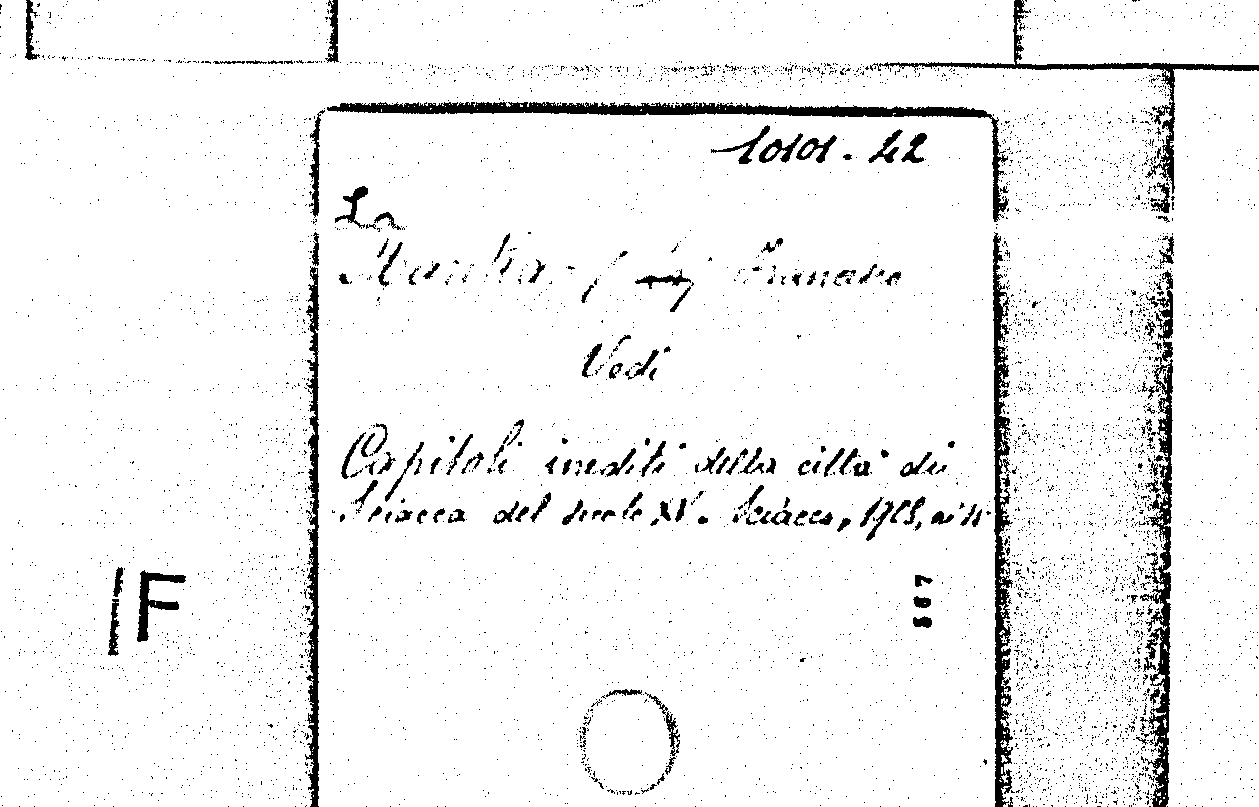 10101. 42
La
Mantia, ( La) Francesco
Vedi
Capitoli inediti della città di
Sciacca del secolo XV. Sciacca, 
567
IF